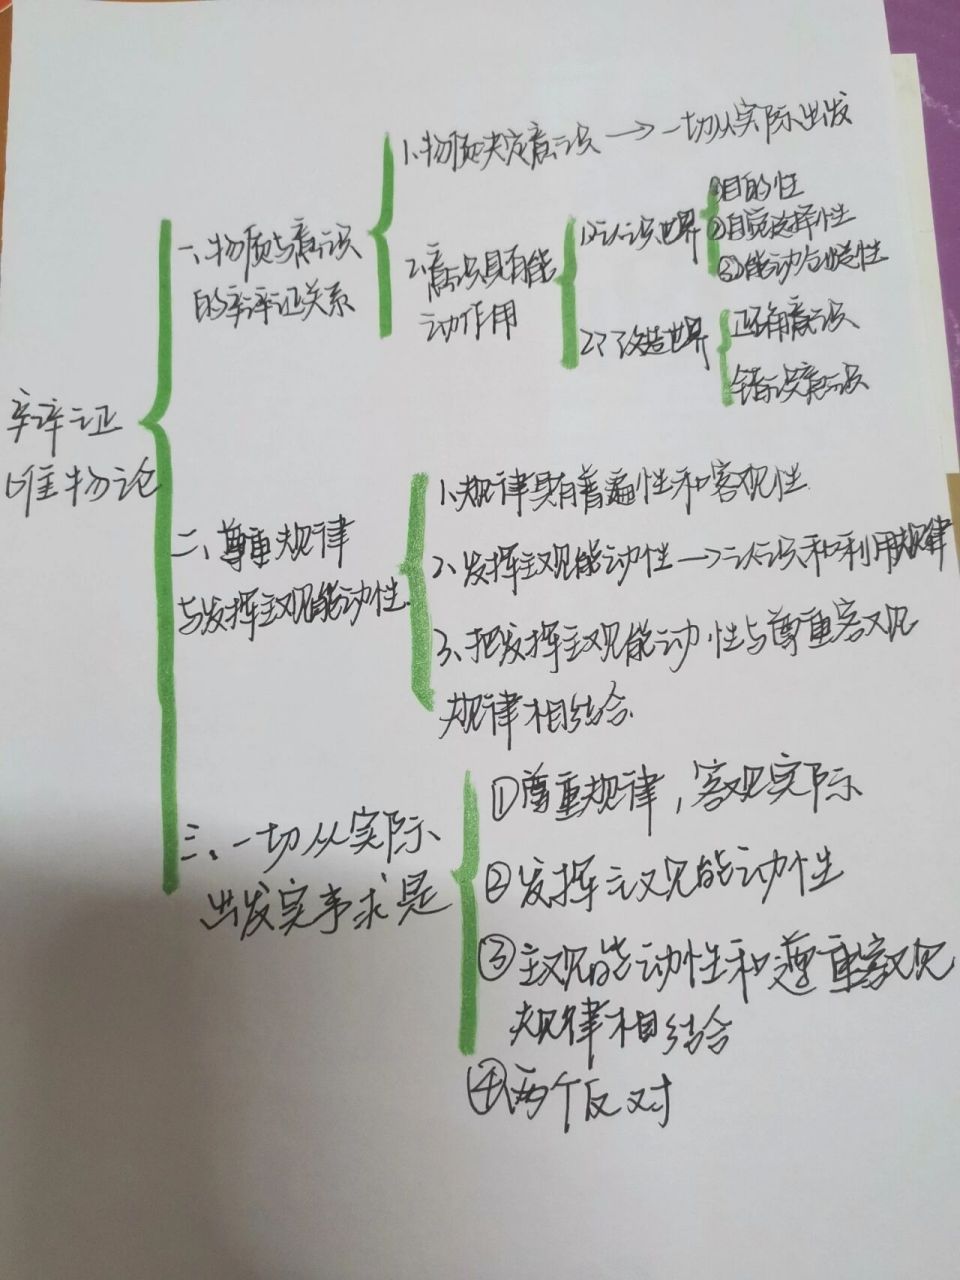 辩证
唯物论
一、物质与意识
的辩证关系
1、物质决定意识→一切从实际出发
2、意识具有能
动作用
1>认识世界
①目的性
②自觉选择性
③能动创造性
2>改造世界
正确意识
错误意识
二、尊重规律
与发挥主观能动性
1、规律具有普遍性和客观性
2、发挥主观能动性→认识和利用规律
3、把发挥主观能动性与尊重客观
规律相结合.
三、一切从实际
出发实事求是
①尊重规律，客观实际
②发挥主观能动性
③主观能动性和遵重客观
规律相结合
④两个反对